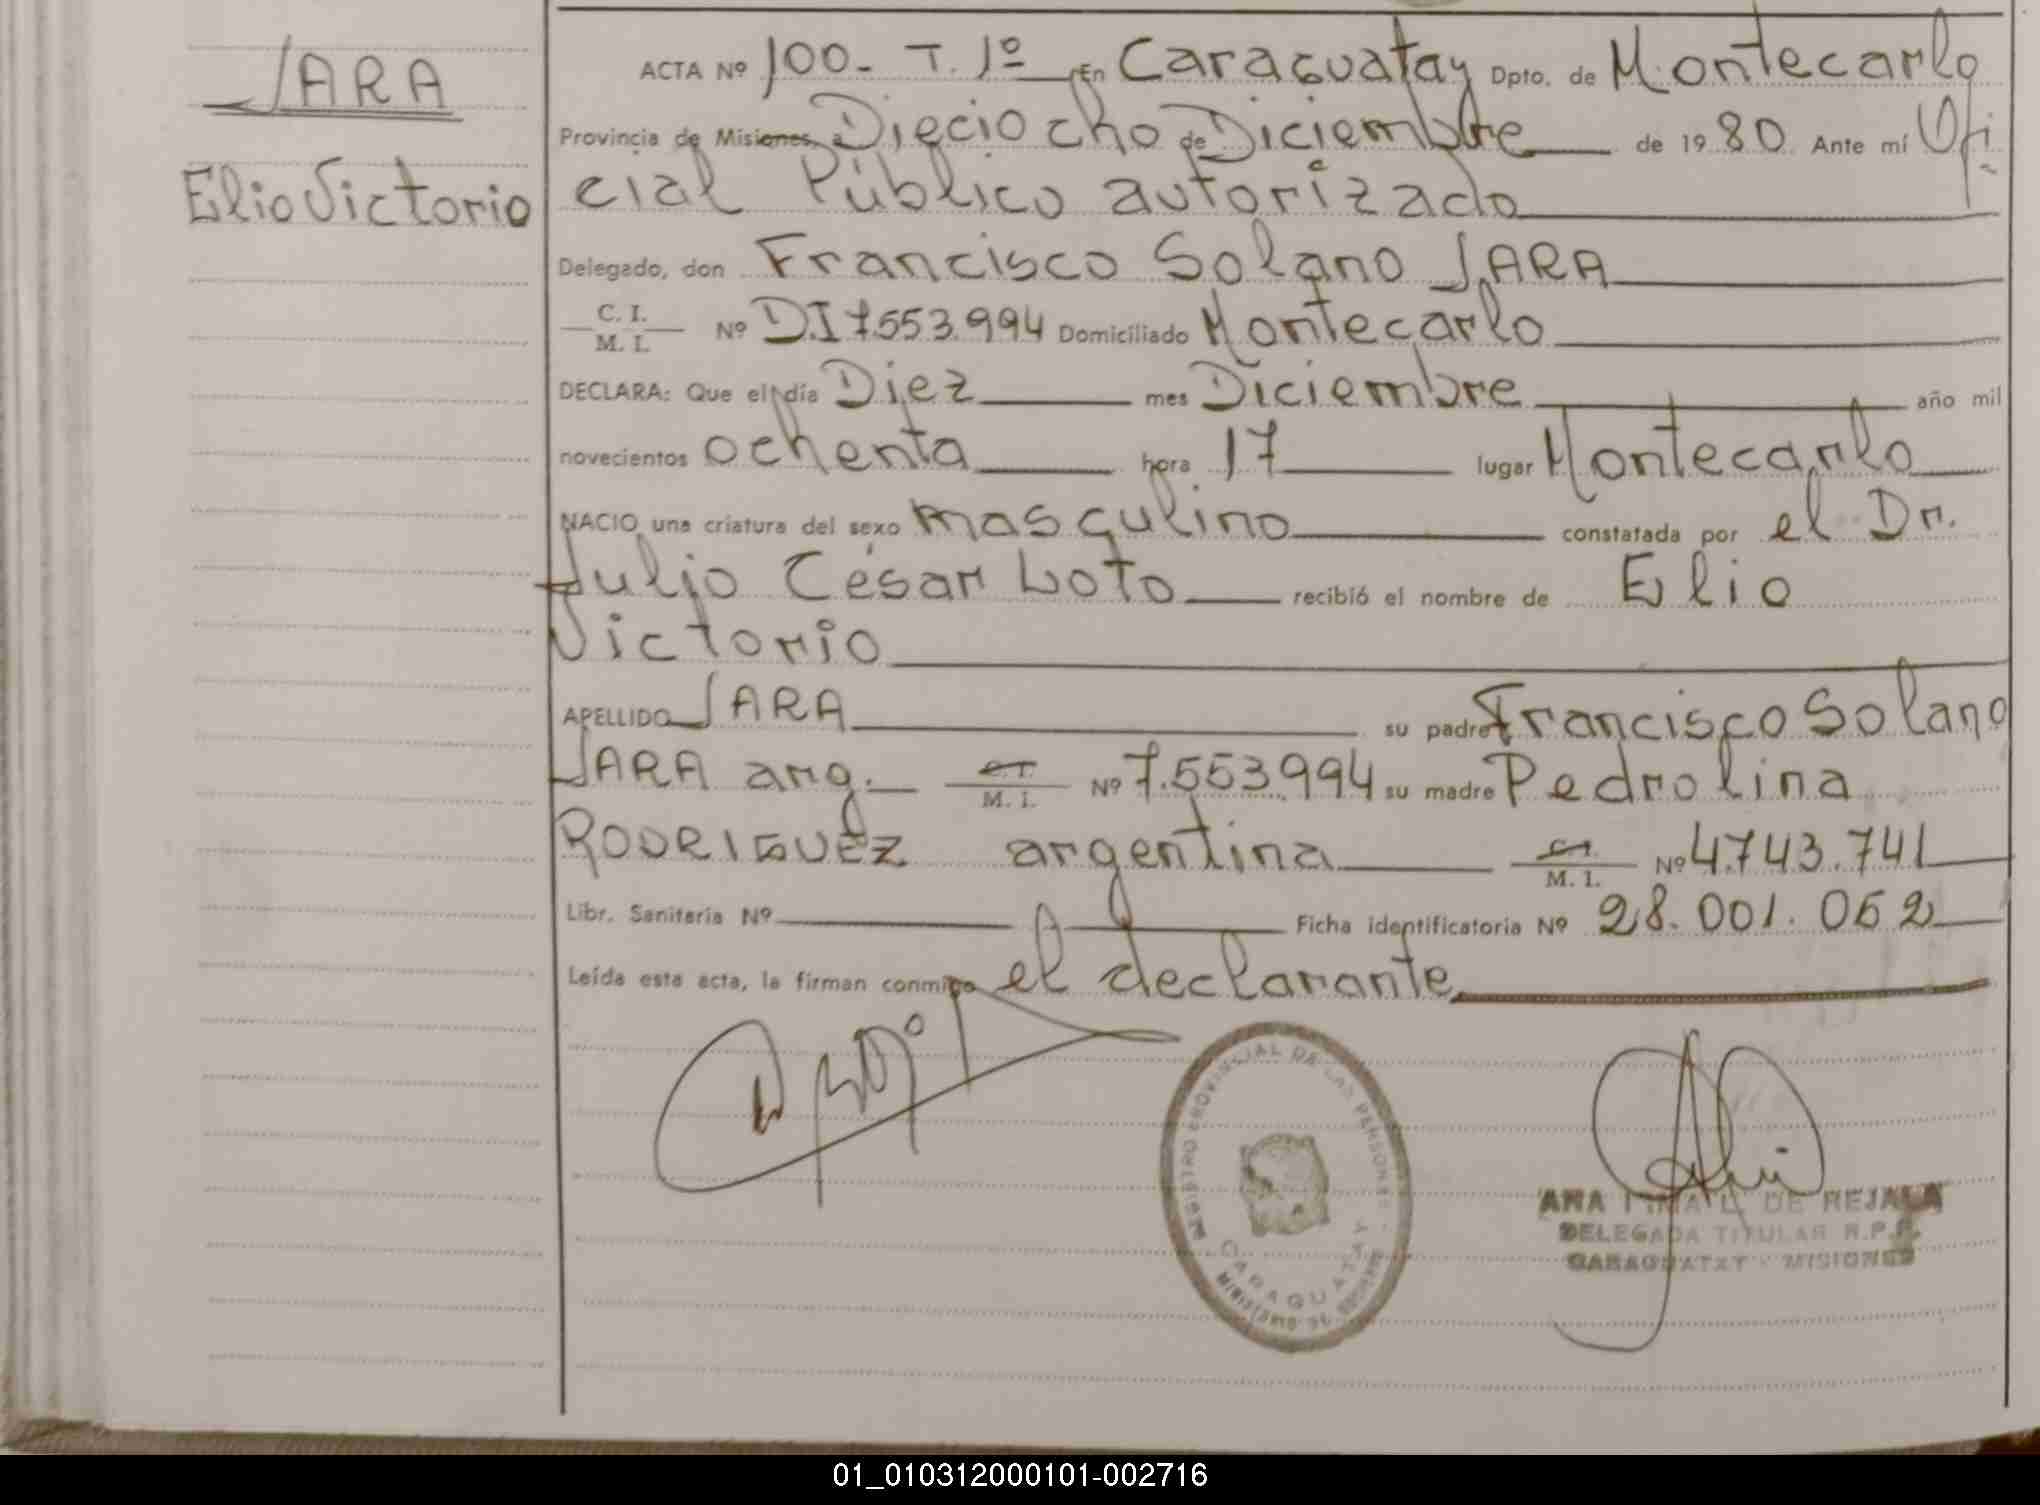 JARA
Elio Victorio
ACTA Nº 100- T. 1º En Caraguatay Dpto. de Montecarlo
Provincia de Misiones, a Dieciocho de Diciembre de 1980 Ante mí Ofi-
cial Público autorizado
Delegado, don Francisco Solano JARA
C. I.
M. I. Nº D.I 7.553.994 Domiciliado Montecarlo
DECLARA: Que el día Diez mes Diciembre año mil
novecientos ochenta hora 17 lugar Montecarlo
NACIO una criatura del sexo masculino constatada por el Dr.
Julio César Loto recibió el nombre de Elio
Victorio
APELLIDO JARA su padre Francisco Solano
JARA arg. C.I.
M. I. Nº 7.553.994 su madre Pedrolina
RODRIGUEZ argentina C.I.
M. I. Nº 4.743.741
Libr. Sanitaria Nº Ficha identificatoria Nº 28.001.052
Leída esta acta, la firman conmigo el declarante
REGISTRO PROVINCIAL DE LAS PERSONAS
CARAGUATAY
MINISTERIO DE GOBIERNO
ANA L. DE REJALA
DELEGADA TITULAR R.P.P.
CARAGUATAY - MISIONES
01_010312000101-002716